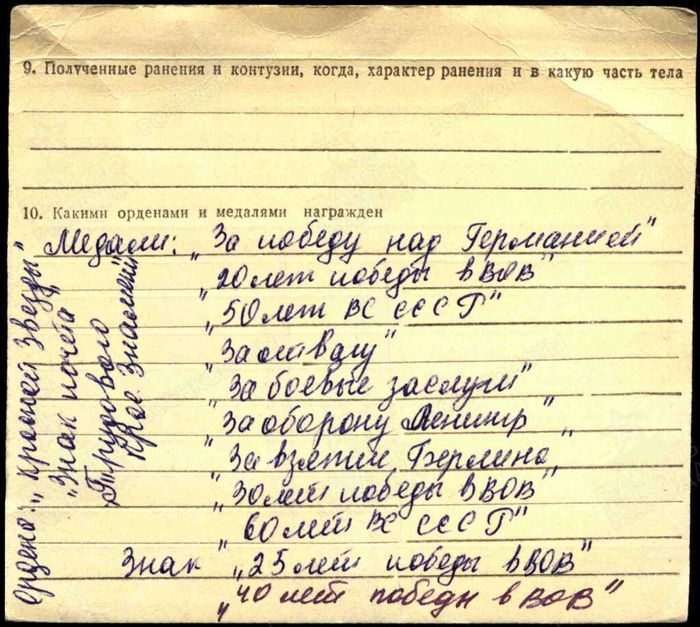 9. Полученные ранения и контузии, когда, характер ранения и в какую часть тела
10. Какими орденами и медалями награжден
Медали: "За победу над Германией"
"20 лет победы в ВОВ"
"50 лет ВС СССР"
"За отвагу"
"За боевые заслуги"
"За оборону Ленингр"
"За взятие Берлина"
"30 лет победы в ВОВ"
"60 лет ВС СССР"
Знак "25 лет победы в ВОВ"
"40 лет победы в ВОВ"
Ордена: "Красной Звезды"
"Знак почета"
"Трудового
Крас. Знамени"